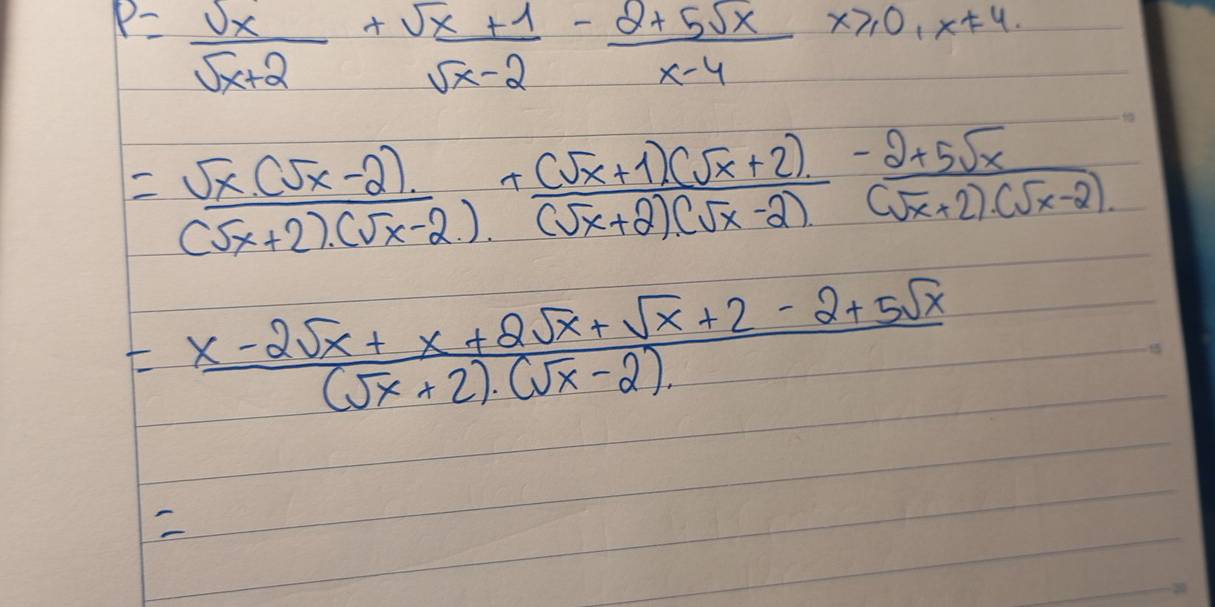 P = √x/(√x+2) + (√x+1)/(√x-2) - (2+5√x)/(x-4) x≥0, x≠4.
= √x.(√x-2)./(√x+2).(√x-2.). + (√x+1)(√x+2)./(√x+2).(√x-2). - 2+5√x/(√x+2).(√x-2).
= x-2√x+x+2√x+√x+2-2+5√x/(√x+2).(√x-2).
=